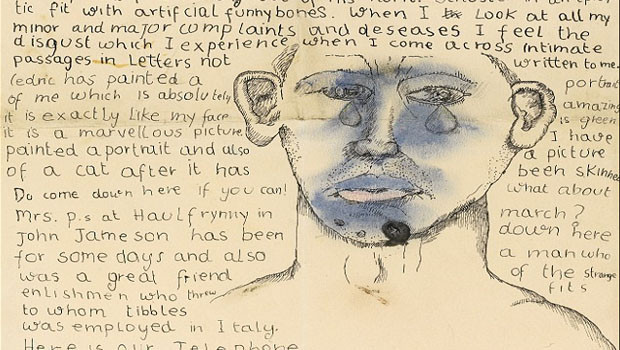 tic fit with artificial funnybones. When I look at all my
minor and major complaints and deseases I feel the
disgust which I experience when I come across intimate
passages in letters not written to me.
Cedric has painted a portrait
of me which is absolutely amazing
it is exactly like my face is green
it is a marvellous picture I have
painted a portrait and also a picture
of a cat after it has been skinned
Do come down here if you can! what about march?
Mrs. p.s at Haulfrynny in down here
John Jameson has been a man who
for some days and also of the strange
was a great friend fits
enlishmen who threw
to whom tibbles
was employed in Italy.
Here is our Telephone